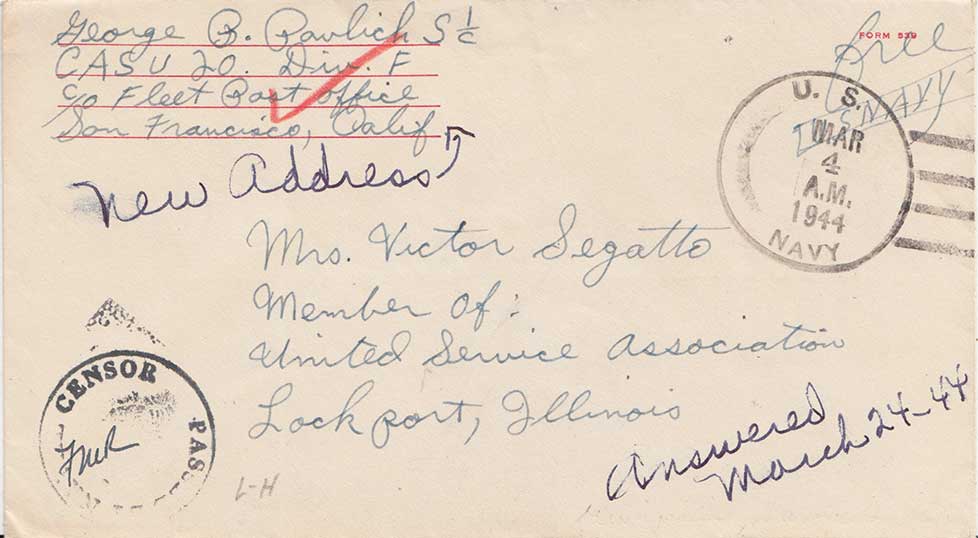 George B. Pavlich S 1/c
CASU 20. Div. F
c/o Fleet Post Office
San Francisco, Calif.
New Address
FORM 539
Free
US NAVY
U. S.
MAR
4
A.M.
1944
NAVY
Mrs. Victor Segatto
Member Of:
United Service Association
Lockport, Illinois
CENSOR
PAS
FMR
L-H
Answered
March 24-44